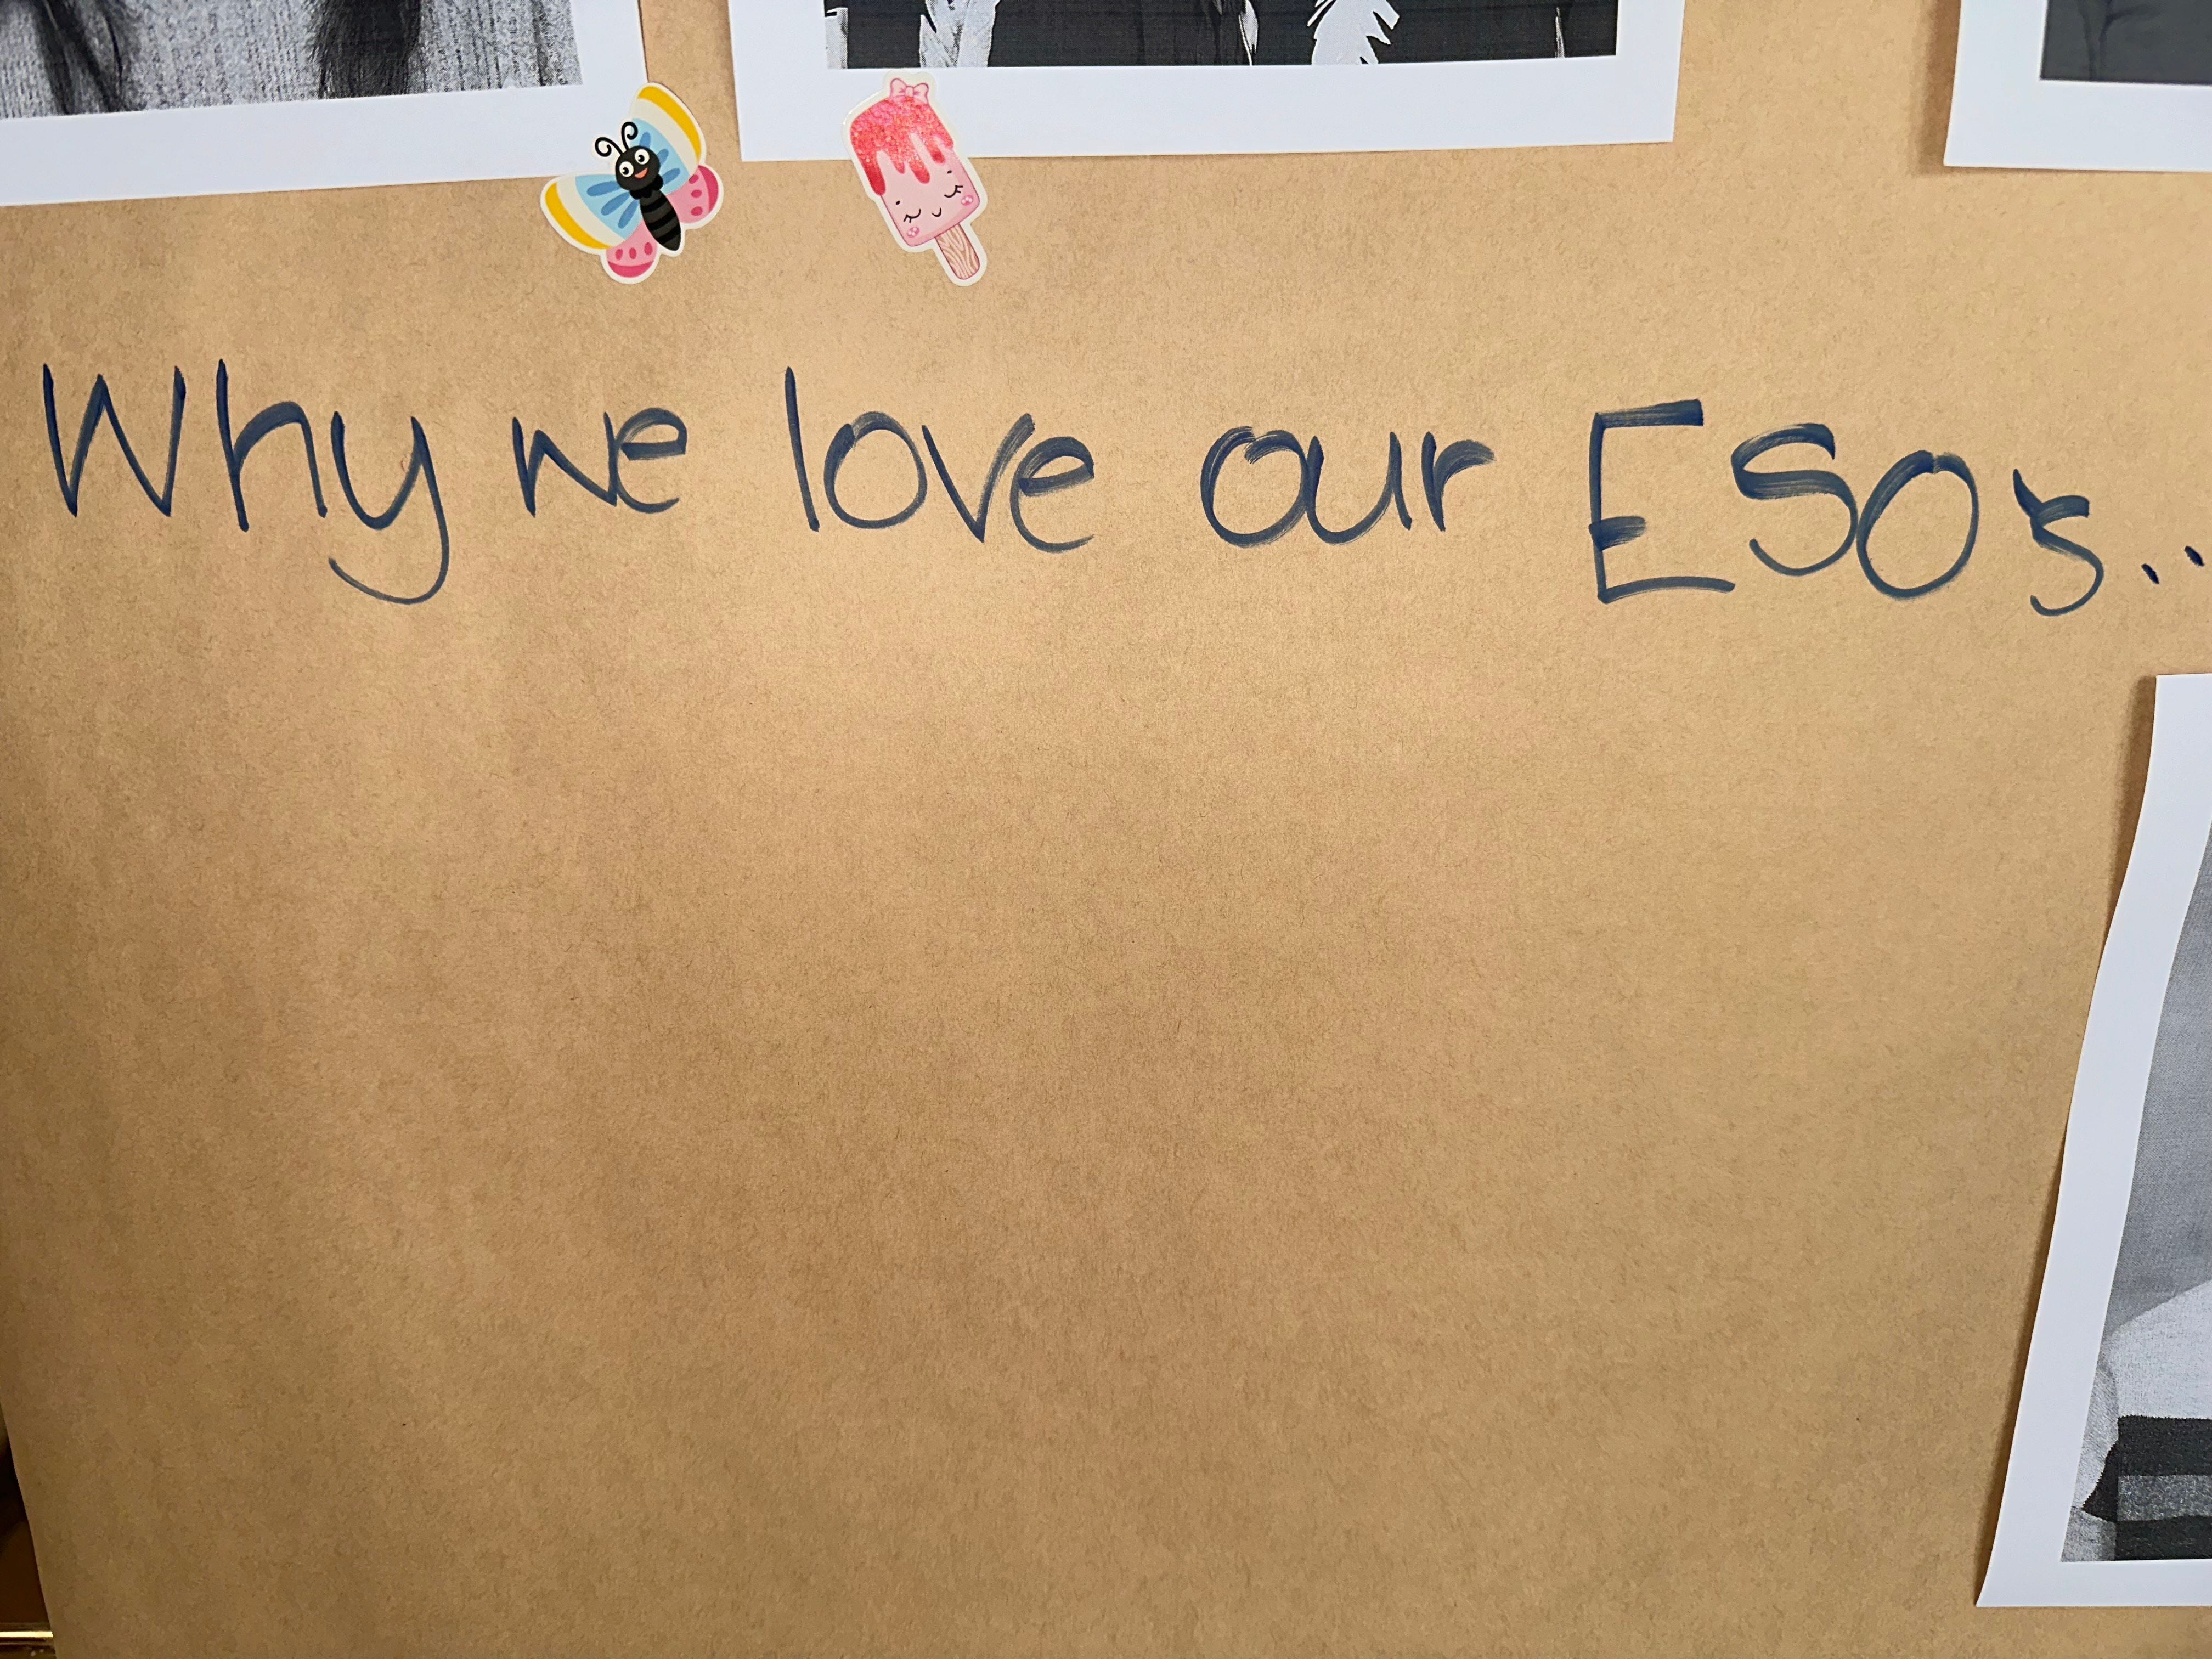 Why we love our ESO's..